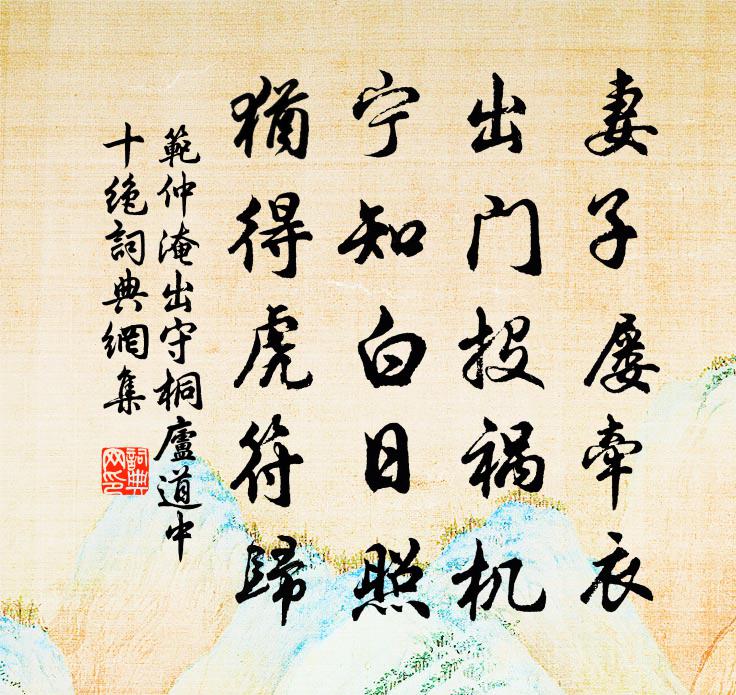 妻子屡牵衣
出门投祸机
宁知白日照
犹得虎符歸
範仲淹出守桐廬道中
十绝詞典網集
詞典网印